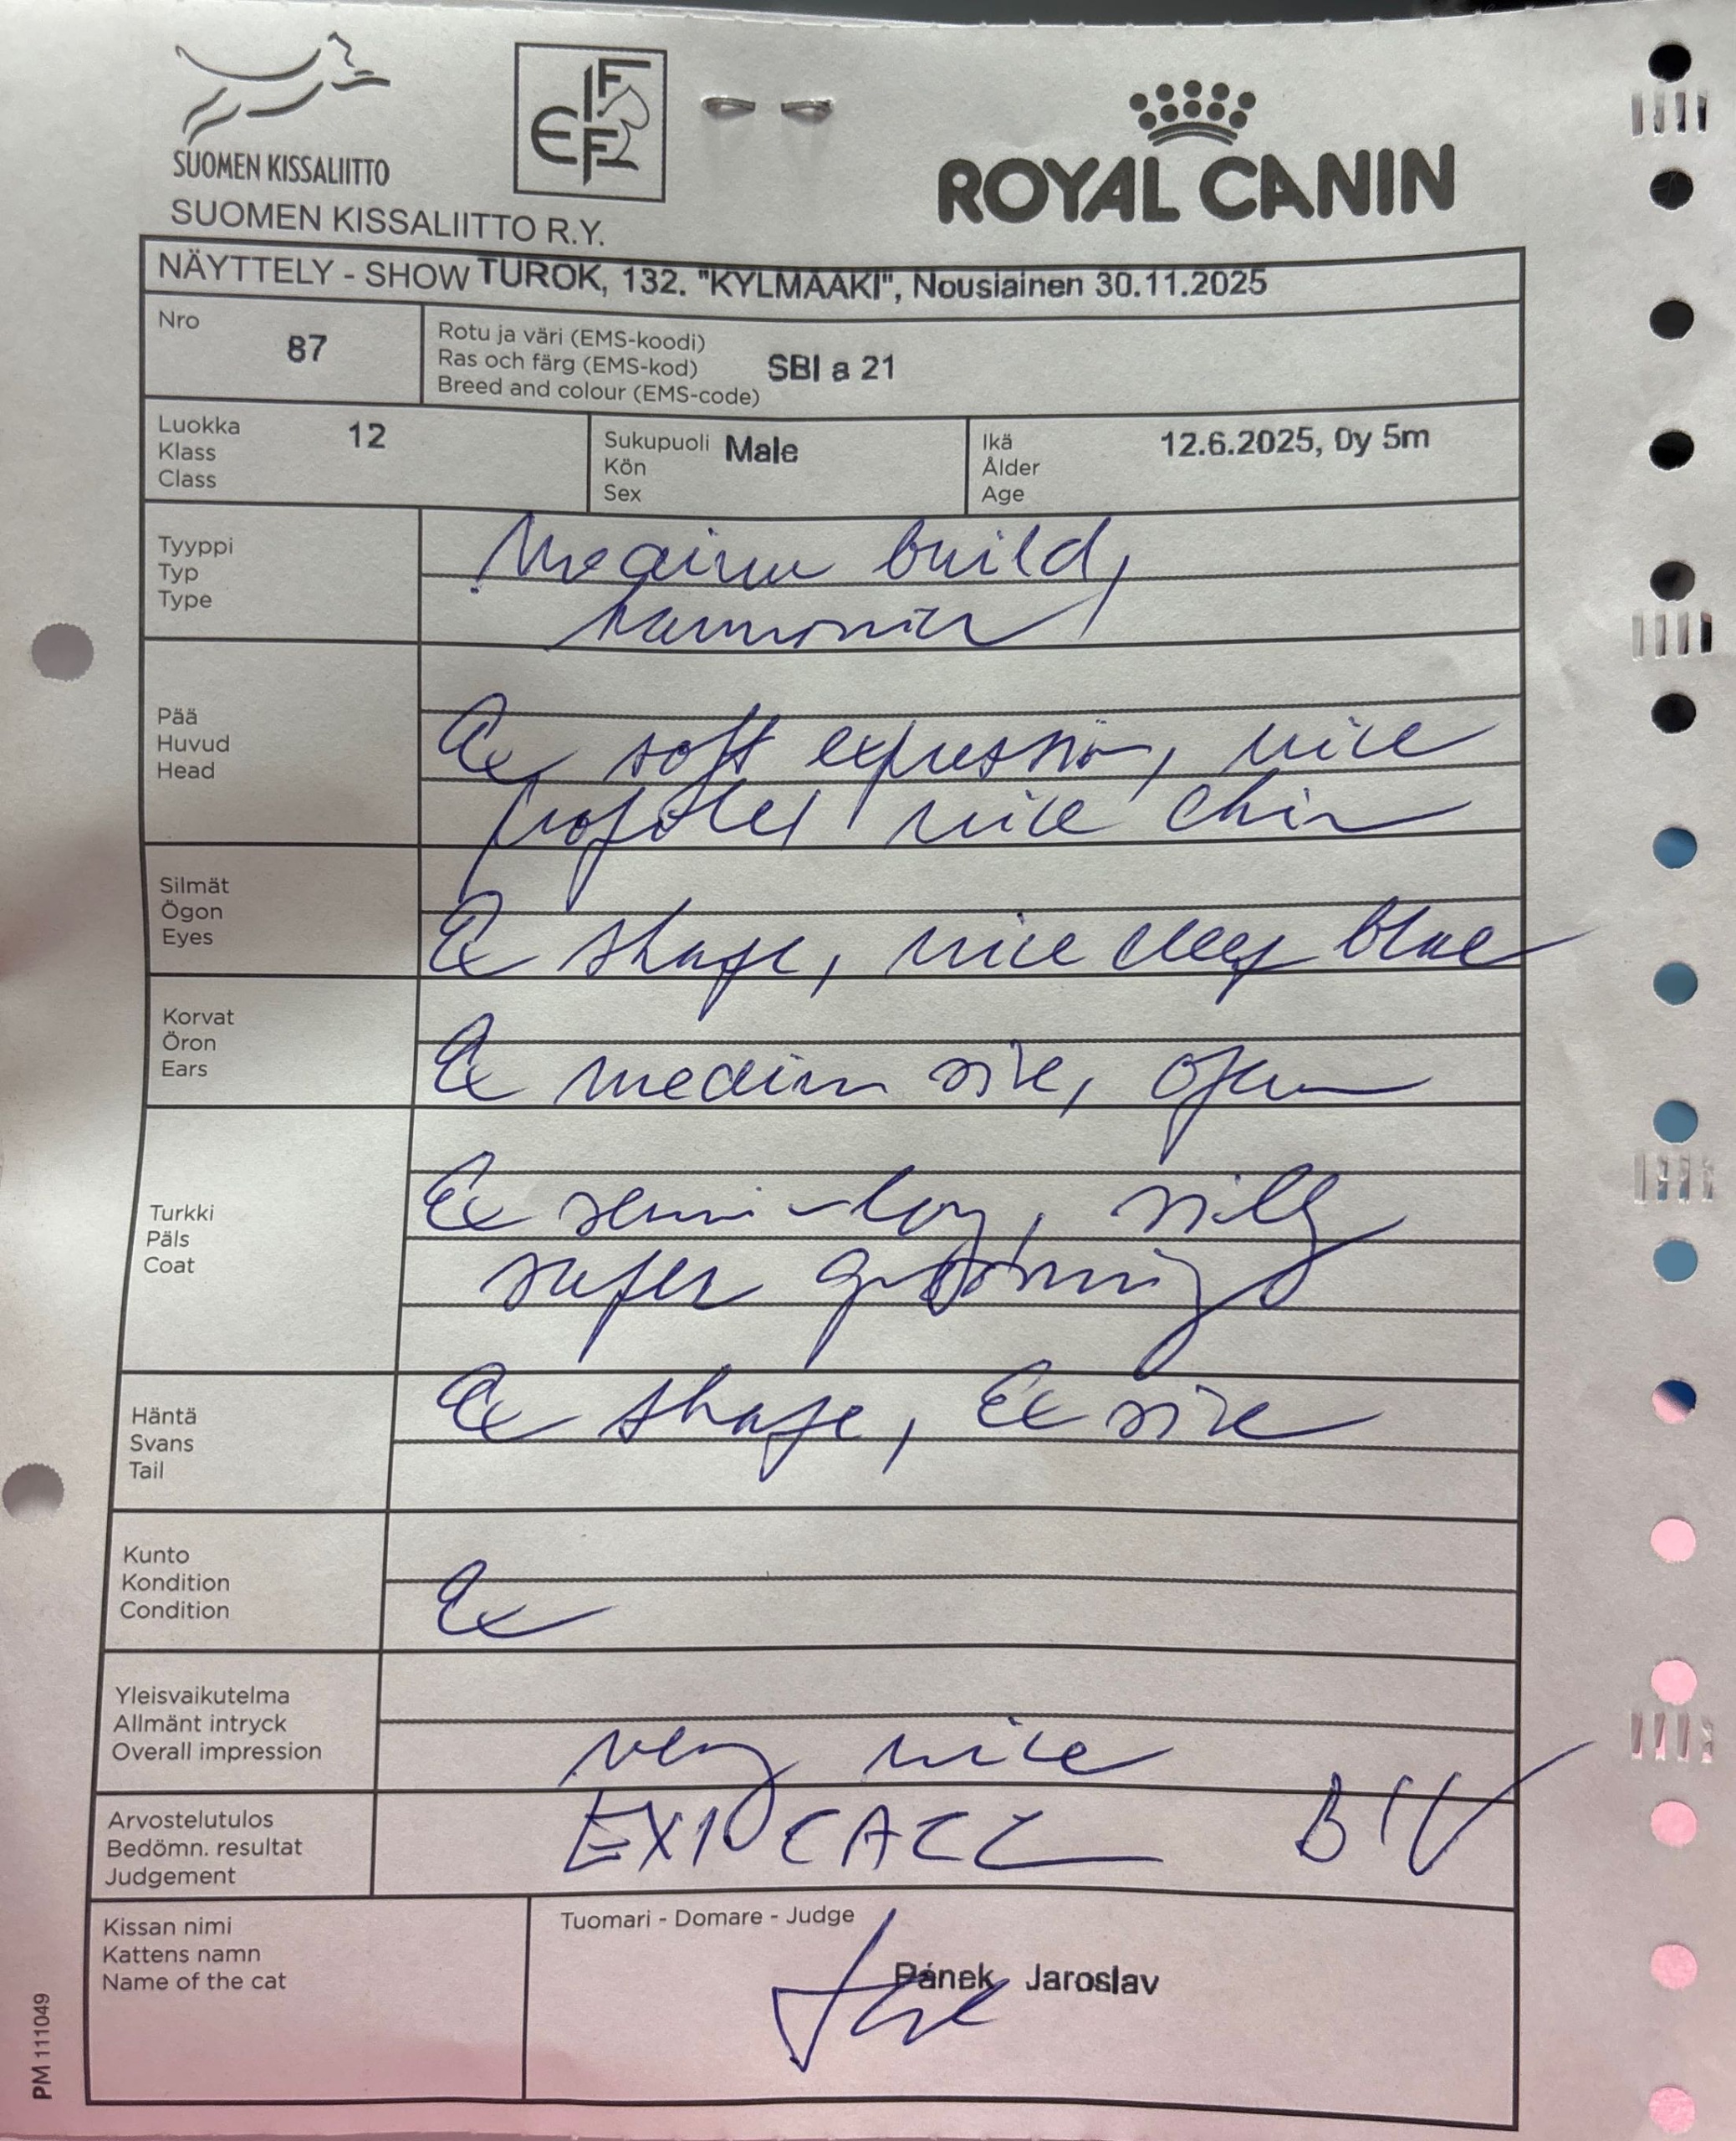 SUOMEN KISSALIITTO
FIFE
ROYAL CANIN
SUOMEN KISSALIITTO R.Y.
NÄYTTELY - SHOW TUROK, 132. "KYLMÄÄKI", Nousiainen 30.11.2025
Nro 87
Rotu ja väri (EMS-koodi)
Ras och färg (EMS-kod) SBI a 21
Breed and colour (EMS-code)
Luokka 12
Klass
Class
Sukupuoli Male
Kön
Sex
Ikä 12.6.2025, 0y 5m
Ålder
Age
Tyyppi
Typ
Type
Medium build,
harmonic
Pää
Huvud
Head
Ex soft expression, nice
profile, nice chin
Silmät
Ögon
Eyes
Ex shape, nice deep blue
Korvat
Öron
Ears
Ex medium size, open
Turkki
Päls
Coat
Ex semi-long, silky
super grooming
Häntä
Svans
Tail
Ex shape, Ex size
Kunto
Kondition
Condition
Ex
Yleisvaikutelma
Allmänt intryck
Overall impression
very nice
Arvostelutulos
Bedömn. resultat
Judgement
EX1 BIV
Kissan nimi
Kattens namn
Name of the cat
Tuomari - Domare - Judge
Pánek Jaroslav
PM 111049